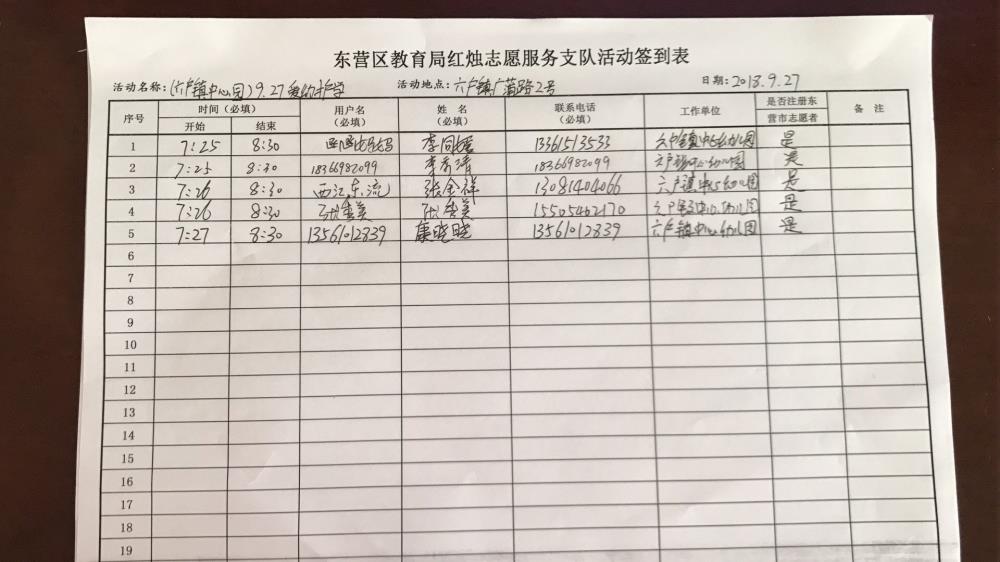 东营区教育局红烛志愿服务支队活动签到表
活动名称:(六户镇中心园)9.27爱的护学 活动地点:六户镇广蒲路2号 日期:2018.9.27
序号 时间(必填) 用户名(必填) 姓名(必填) 联系电话(必填) 工作单位 是否注册东营市志愿者 备注
开始 结束
1 7:25 8:30 李同媛 13361513533 六户镇中心幼儿园 是
2 7:25 8:30 18366982099 李秀清 18366982099 六户镇中心幼儿园 是
3 7:26 8:30 西江东流 张金祥 13081404066 六户镇中心幼儿园 是
4 7:26 8:30 张香美 张香美 15505462170 六户镇中心幼儿园 是
5 7:27 8:30 13561012839 康晓晓 13561012839 六户镇中心幼儿园 是
6
7
8
9
10
11
12
13
14
15
16
17
18
19